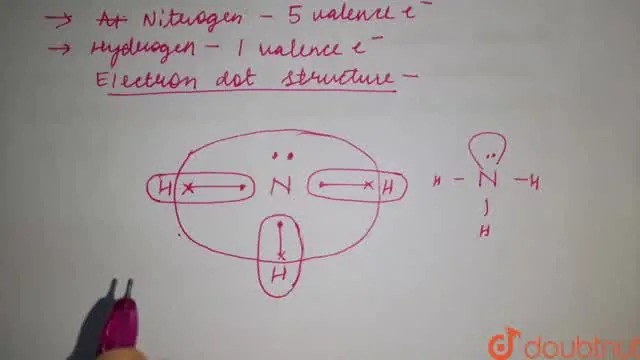 → At Nitrogen - 5 valence e⁻
→ Hydrogen - 1 valence e⁻
Electron dot structure -
H N H
H
H - N - H
H
doubtnut